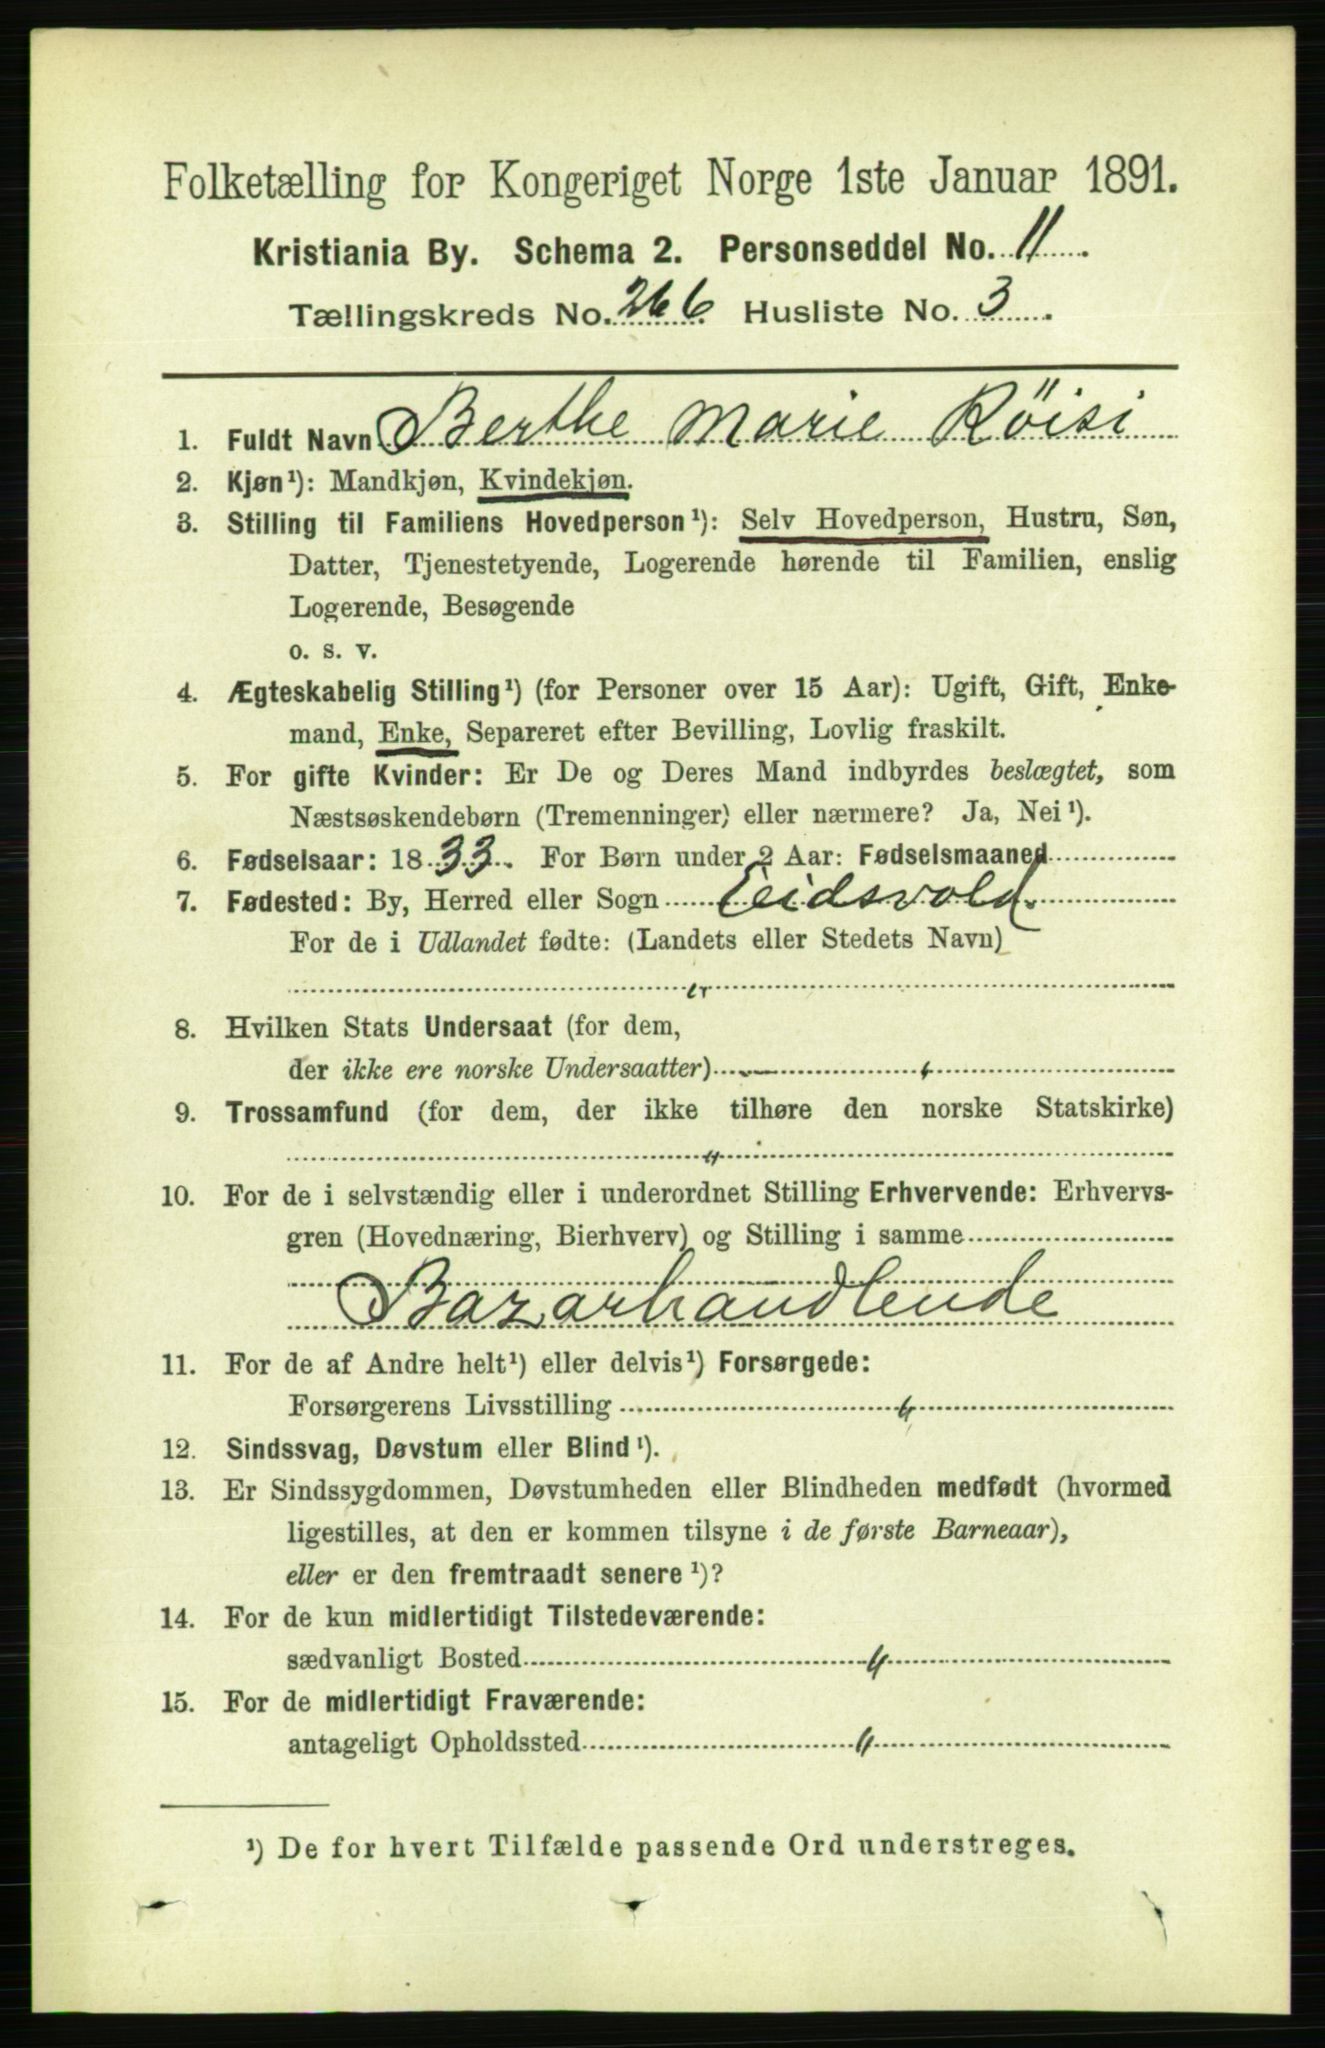 Folketælling for Kongeriget Norge 1ste Januar 1891.
Kristiania By. Schema 2. Personseddel No. 11.
Tællingskreds No. 266. Husliste No. 3.
1. Fuldt Navn Berthe Marie Röisi
2. Kjøn¹): Mandkjøn, Kvindekjøn.
3. Stilling til Familiens Hovedperson¹): Selv Hovedperson, Hustru, Søn,
Datter, Tjenestetyende, Logerende hørende til Familien, enslig
Logerende, Besøgende
o. s. v.
4. Ægteskabelig Stilling¹) (for Personer over 15 Aar): Ugift, Gift, Enke-
mand, Enke, Separeret efter Bevilling, Lovlig fraskilt.
5. For gifte Kvinder: Er De og Deres Mand indbyrdes beslægtet, som
Næstsøskendebørn (Tremenninger) eller nærmere? Ja, Nei¹).
6. Fødselsaar: 1833. For Børn under 2 Aar: Fødselsmaaned
7. Fødested: By, Herred eller Sogn Eidsvold.
For de i Udlandet fødte: (Landets eller Stedets Navn)
"
8. Hvilken Stats Undersaat (for dem,
der ikke ere norske Undersaatter) "
9. Trossamfund (for dem, der ikke tilhøre den norske Statskirke)
"
10. For de i selvstændig eller i underordnet Stilling Erhvervende: Erhvervs-
gren (Hovednæring, Bierhverv) og Stilling i samme
Bazarhandlende
11. For de af Andre helt¹) eller delvis¹) Forsørgede:
Forsørgerens Livsstilling "
12. Sindssvag, Døvstum eller Blind¹).
13. Er Sindssygdommen, Døvstumheden eller Blindheden medfødt (hvormed
ligestilles, at den er kommen tilsyne i de første Barneaar),
eller er den fremtraadt senere¹)?
14. For de kun midlertidigt Tilstedeværende:
sædvanligt Bosted "
15. For de midlertidigt Fraværende:
antageligt Opholdssted "
¹) De for hvert Tilfælde passende Ord understreges.